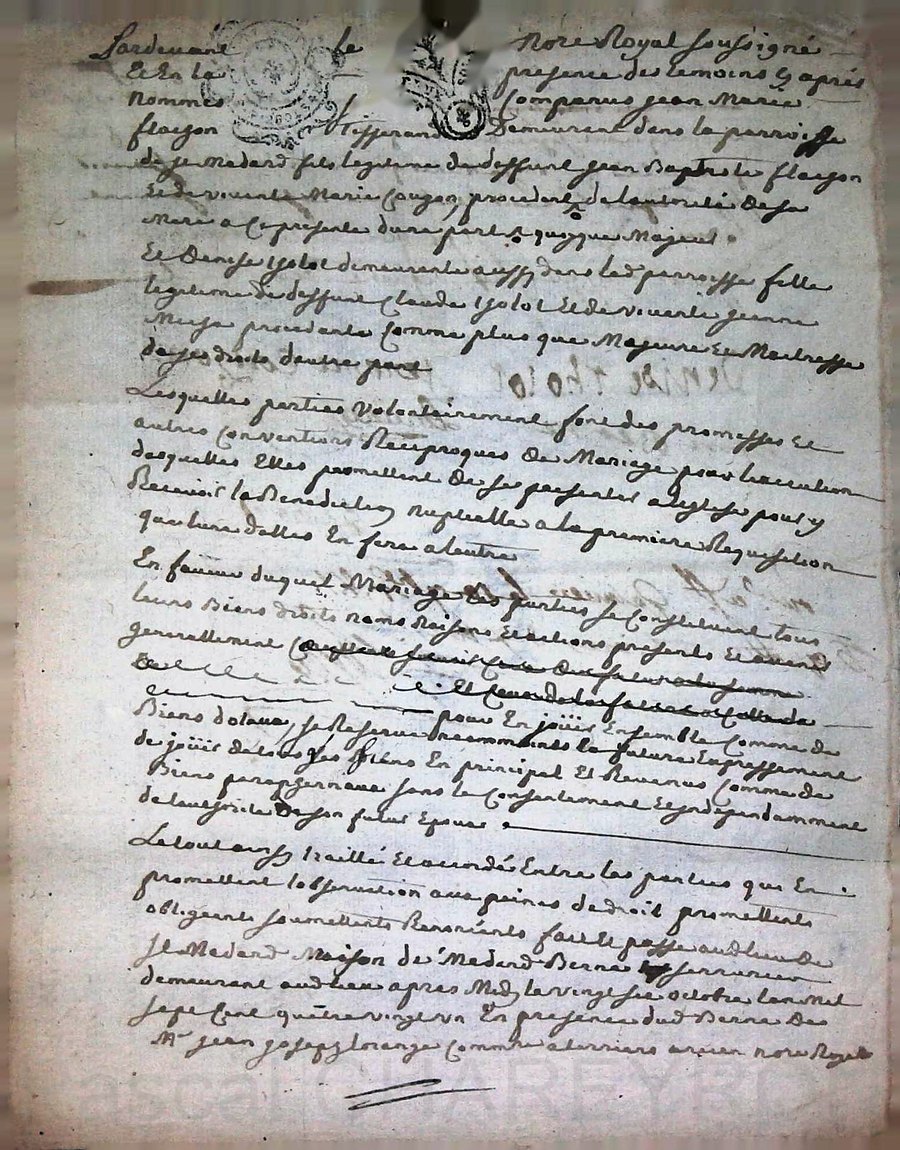 Pardevant le Nore Royal soussigné
Et En la presence des temoins Cy aprés
Nommes Comparus jean Marie
flaçon tisserand Demeurant dans la parroisse
de St Medard fils legitime du deffunt jean Baptiste flaçon
Et de vivante Marie procedant de lautorité de sa
Mere a Ce presente dune part quoyque Majeur
Et Denise tholot demeurante aussy dans lad parroisse fille
legitime de deffunt Claude tholot Et de vivante jeanne
procedante Comme plus que Majeure Et Maitresse
de ses droits dautre part
Lesquelles parties volontairement font des promesses Et
autres Conventions Reciproques de Mariage pour lexecution
desquelles Elles promettent de se presenter a leglise pour y
Recevoir la Benediction nuptialle a la premiere Requisition
que lune delles En fera a lautre
En faveur duquel Mariage les parties se Constituent tous
leurs Biens droits noms Raisons Et actions presents Et avenir
generallement
Et
pour En joüir Ensemble Comme de
Biens dotaux, se Reservant neanmoints la future Expressement
de joüir de tous ses Biens En principal Et Revenus Comme de
Biens parapgernaux sans le Consentement Et independamment
de lauthorité de son futur Epoux
Le tout ainsy traitté Et accordé Entre les parties qui En
promettent lobservation aux peines de droit promettants
obligeants soumettants Renonçants fait Et passé aud lieu de
St Medard Maison de Medard Berne serrurier
demeurant aud lieu apres Midy le vingt six octobre lan Mil
sept Cent quatre vingt un En presence dud Berne de
Mr jean joseph lorange Commre a terriers ancien nore Royal